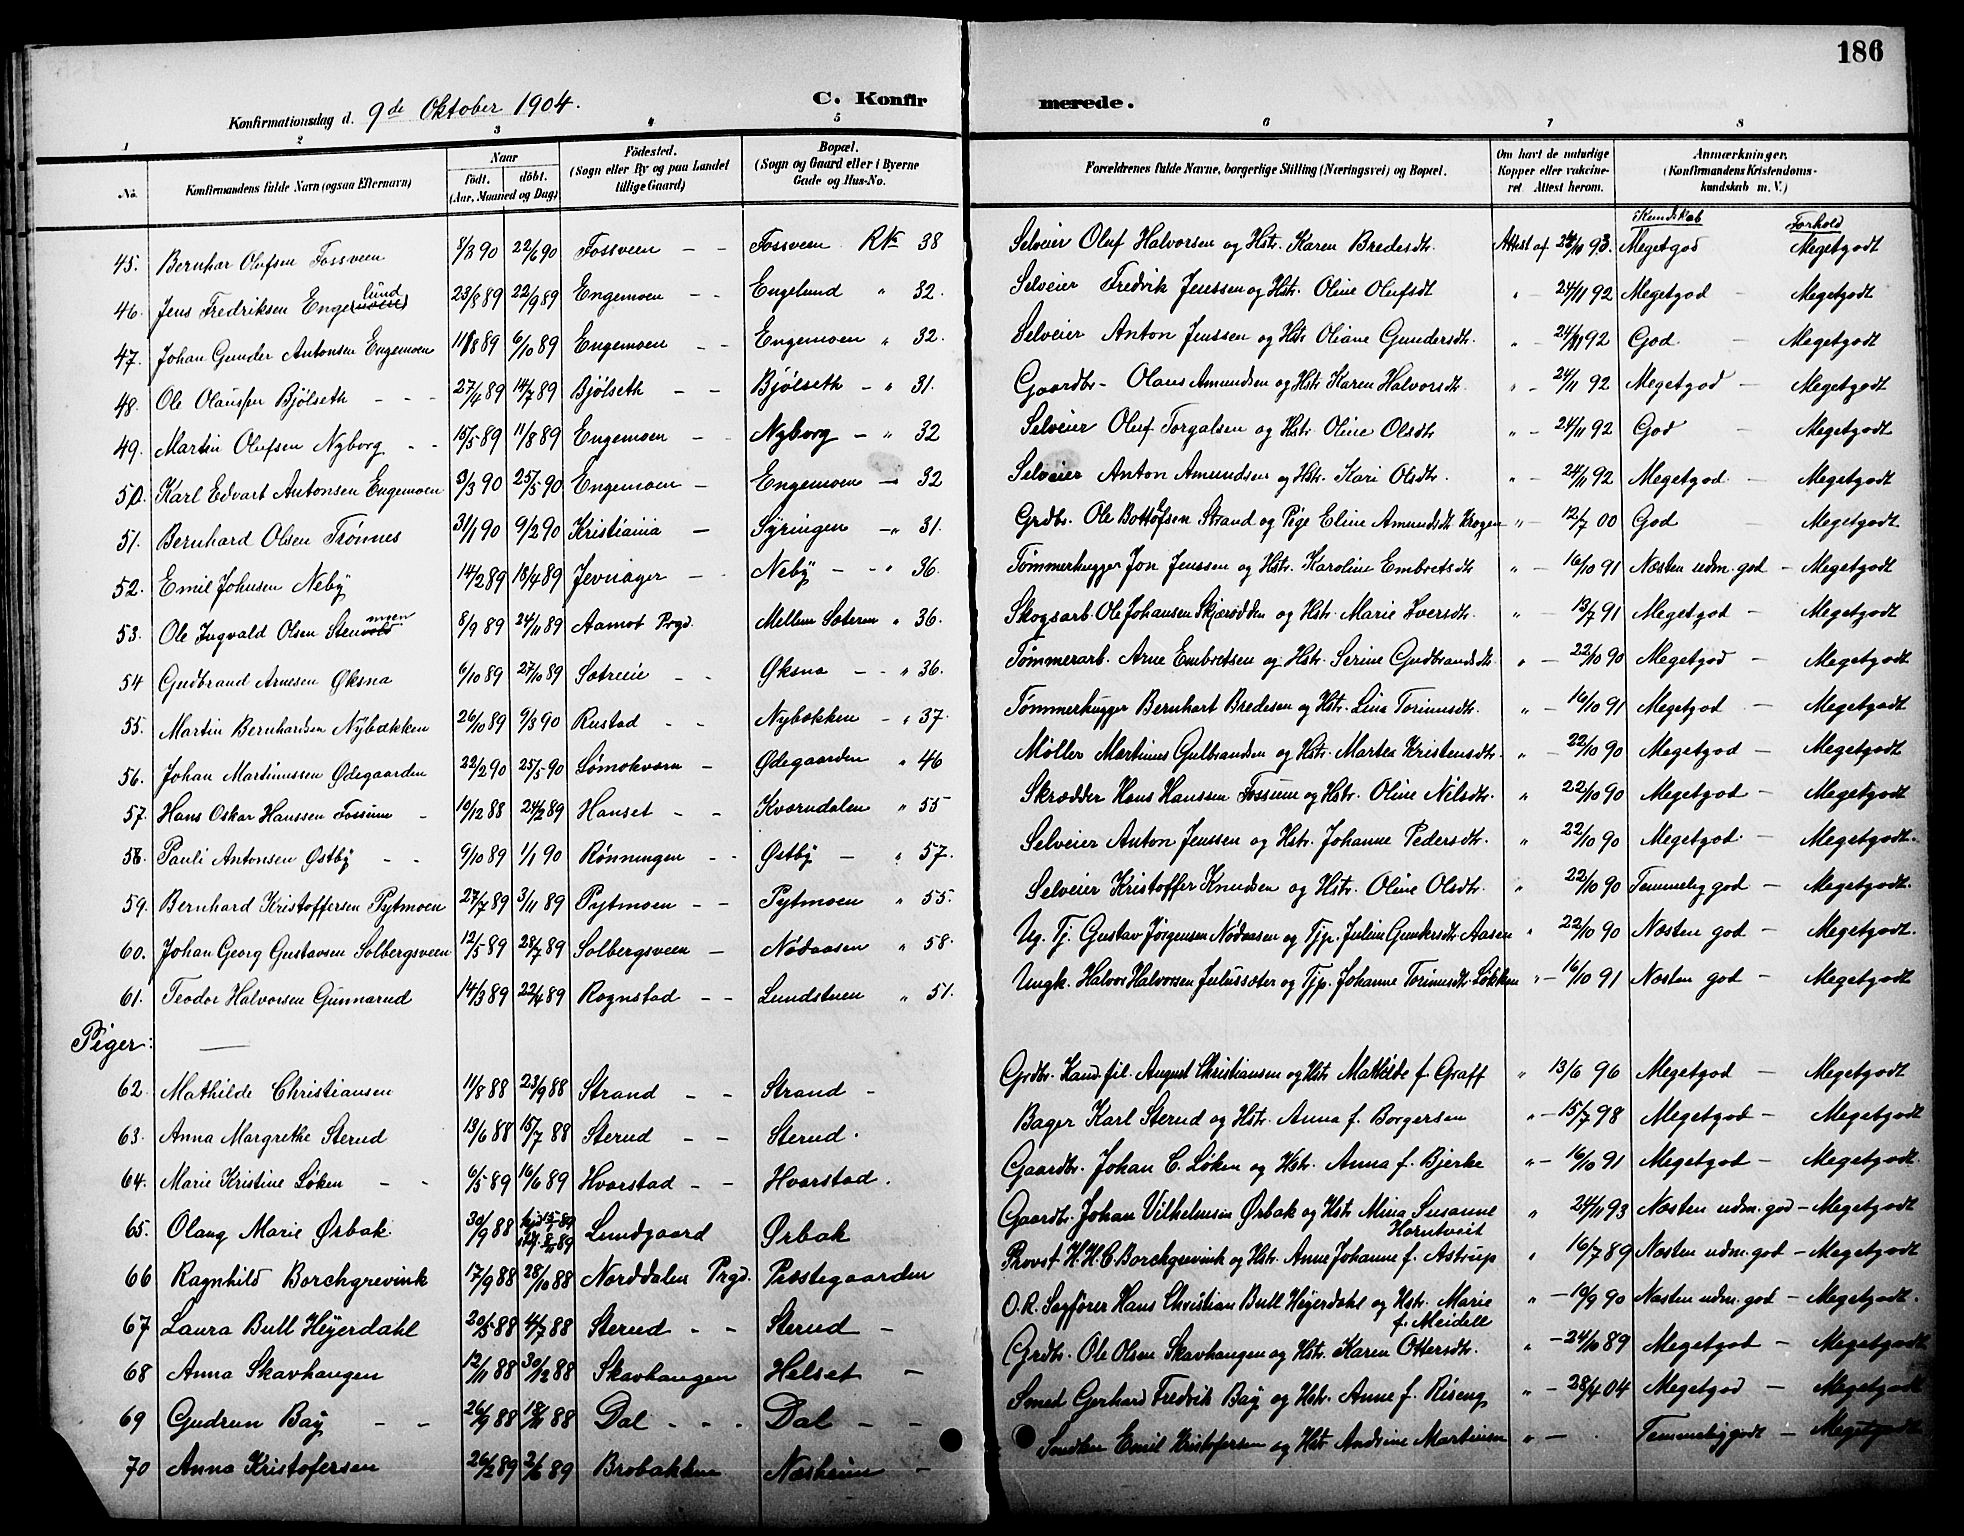 186
Konfirmationsdag d. 9de Oktober 1904. C. Konfirmerede.
1 2 3 4 5 6 7 8
No. Konfirmandens fulde Navn (ogsaa Efternavn) Naar født. døbt. (Aar, Maaned og Dag) Födested. (Sogn eller By og paa Landet tillige Gaard) Bopæl. (Sogn og Gaard eller i Byerne Gade og Hus-No. Forældrenes fulde Navne, borgerlige Stilling (Næringsvei) og Bopæl. Om havt de naturlige Kopper eller vakcineret. Attest herom. Anmærkninger. (Konfirmandens Kristendomskundskab m. V.)
Kundskab Forhold
45. Bernhar Olufsen Fossveen 8/2 90 22/6 90 Fossveen - - Fossveen Rk 38 Selveier Oluf Halvorsen og Hstr. Karen Bredesdtr. Attest af 24/11 93. Megetgod Megetgodt
46. Jens Fredriksen Engelund 23/8 89 22/9 89 Engemoen - - Engelund " 32. Selveier Fredrik Jenssen og Hstr. Oline Olufsdt " - 24/11 92 Megetgod - Megetgodt
47. Johan Gunder Antonsen Engemoen 11/8 89 6/10 89 Engemoen - - Engemoen " 32. Selveier Anton Jenssen og Hstr Oliane Gundersdtr. " - 24/11 92 God. - Megetgodt
48. Ole Olaussen Bjølseth - - - 27/4 89 14/7 89 Bjølseth - - Bjølseth - " 31. Gaardbr - Olaus Amundsen og Hstr Karen Halvorsdt. " - 24/11 92 Megetgod - Megetgodt
49. Martin Olufsen Nyborg - - 15/5 89 11/8 89 Engemoen - - Nyborg - " 32 Selveier Oluf Torgalsen og Hstr Oline Olsdtr " - 24/11 92 God - Megetgodt
50. Karl Edvart Antonsen Engemoen 3/3 90 25/5 90 Engemoen - Engemoen - 32 Selveier Anton Amundsen og Hstr. Kari Olsdtr. " - 24/11 92 Megetgod. - Megetgodt
51. Bernhard Olsen Trønnes 31/1 90 9/2 90 Kristiania - Syringen - " 31. Grdbr. Ole Bottolfsen Strand og Pige Eline Amundsdt Krogen " - 12/7 00 God - Megetgodt
52. Emil Johnsen Neby 14/2 89 18/4 89 Jevnager - - Neby - - " 36. Tømmerhugger Jon Jenssen og Hstr. Karoline Embretsdtr " - 16/10 91 Næsten udm. god - Megetgodt
53. Ole Ingvald Olsen Stenmoen 8/9 89 24/11 89 Aamot Prgd. Mellem Sæteren " 36. Skogsarb. Ole Johansen Skjærødden og Hstr. Marie Iversdtr. " - 13/7 91 Megetgod - Megetgodt
54 Gudbrand Arnesen Øksna 6/10 89 27/10 89 Sætreeie - - Øksna - - " 36. Tømmerarb. Arne Embretsen og Hstr. Serine Gudbrandsdt. " - 22/10 90 Megetgod - Megetgodt
55. Martin Bernhardsen Nybækken 26/10 89 9/3 90 Rustad - - Nybækken - " 37. Tømmerhugger Bernhart Bredesen og Hstr. Lina Torinusdtr. " - 16/10 91 Megetgod - Megetgodt
56. Johan Martinussen Ødegaarden 22/2 90 25/5 90 Lømokværn - Ødegaarden " 46 Møller Martinus Gulbrandsen og Hstr. Martea Kristensdtr. " - 22/10 90 Megetgod - Megetgodt
57. Hans Oskar Hanssen Fossum - 10/12 88 24/2 89 Hanset - - Kværndalen " 55 Skrædder Hans Hanssen Fossum og Hstr. Oline Nilsdtr. " 22/10 90 Megetgod - Megetgodt
58. Pauli Antonsen Østby - - 9/10 89 1/1 90 Rønningen - - Østby - " 57. Selveier Anton Jenssen og Hstr. Johanne Pedersdtr. " 22/10 90 Megetgod. - Megetgodt.
59. Bernhard Kristoffersen Pytmoen 27/7 89 3/11 89 Pytmoen - - Pytmoen " 55. Selveier Kristoffer Knudsen og Hstr. Oline Olsdtr. " 22/10 90 Temmelig god - Megetgodt.
60. Johan Georg Gustavsen Solbergsveen 12/5 89 28/7 89 Solbergsveen - Nødaasen " 58. Ug. Tj. Gustav Jørgensen Nødaasen og Tjp. Juline Gundersdt. Aasen " 22/10 90 Næsten god - Megetgodt.
61. Teodor Halvorsen Gunnarud 14/3 89 22/4 89 Rognstad - - Lundstuen " 51. Ungk. Halvor Halvorsen Julussæter og Tjp. Johanne Torinusdtr. Løkken " - 16/10 91 Næsten god - Megetgodt
Piger:
62. Mathilde Christiansen 11/8 88 23/9 88 Strand - - Strand - Grdbr. Kand. fil. August Christiansen og Hstr Mathilde f. Graff " 13/6 96 Megetgod - Megetgodt
63. Anna Margrethe Sterud 13/6 88 15/7 88 Sterud - - Sterud. Bager Karl Sterud og Hstr. Anna f. Borgersen " - 15/7 98 Megetgod - Megetgodt
64. Marie Kristine Løken - - 6/5 89 16/6 89 Hvarstad - - Hvarstad. Gaardbr. Johan C. Løken og Hstr. Anna f. Bjerke " - 16/10 91 Megetgod - Megetgodt
65. Olaug Marie Ørbak. 30/9 88 Lundgaard Ørbak Gaardbr. Johan Vilhelmsen Ørbak og Hstr Mina Susanne Horntveit " 24/11 93 Næsten udm. god - Megetgodt
66 Ragnhild Borchgrevink 17/9 88 28/10 88 Norddalen Prgd. Præstegaarden Provst H. H. C. Borchgrevink og Hstr. Anne Johanne f. Astrup " 16/7 89 Næsten udm. god - Megetgodt
67 Laura Bull Heyerdahl 20/5 88 4/7 88 Sterud - - Sterud - O.R. Sagfører Hans Christian Bull Heyerdahl og Hstr. Marie f. Meidell " - 19/9 90 Næsten udm. god - Megetgodt.
68 Anna Skavhaugen 12/11 88 30/12 88 Skavhaugen Helset - Grdbr. Ole Olsen Skavhaugen og Hstr. Karen Ottersdtr. " - 24/10 89 Megetgod - Megetgodt
69 Gudrun Bay - - 26/9 88 18/11 88 Dal - - - Dal - - Smed Gerhard Fredrik Bay og Hstr. Anne f. Riseng " - 28/4 04 Megetgod - Megetgodt
70 Anna Kristofersen 26/2 89 2/6 89 Brobakken - Emil Kristofersen og Hstr Andrine Martinsen " - Temmelig godt - Megetgodt